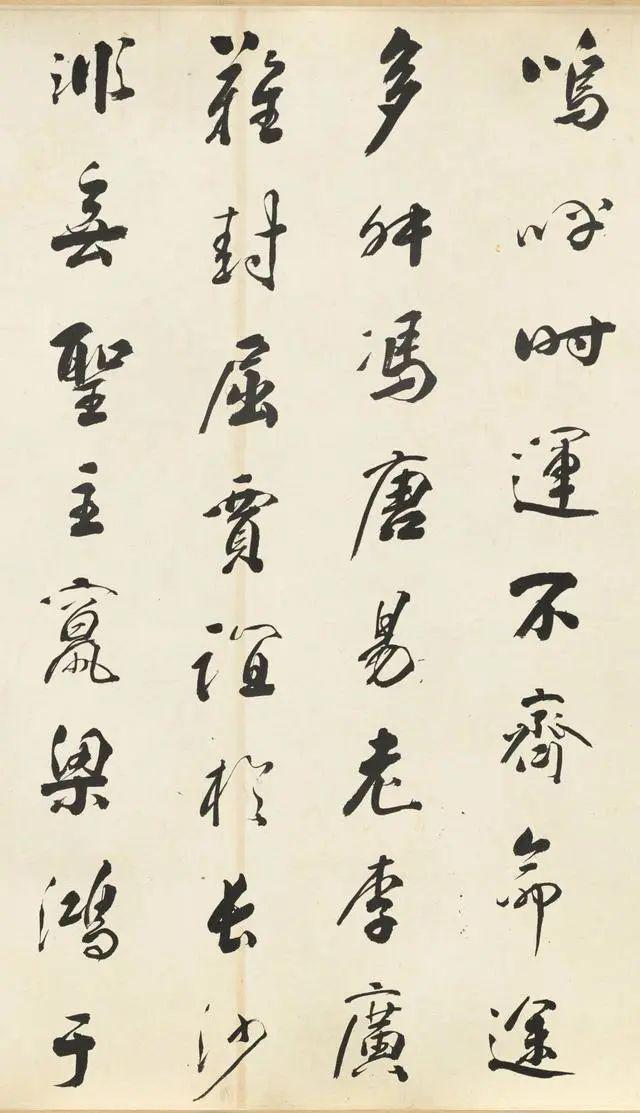 嗚呼時運不齊命途
多舛馮唐易老李廣
難封屈賈誼於長沙
非無聖主竄梁鴻于